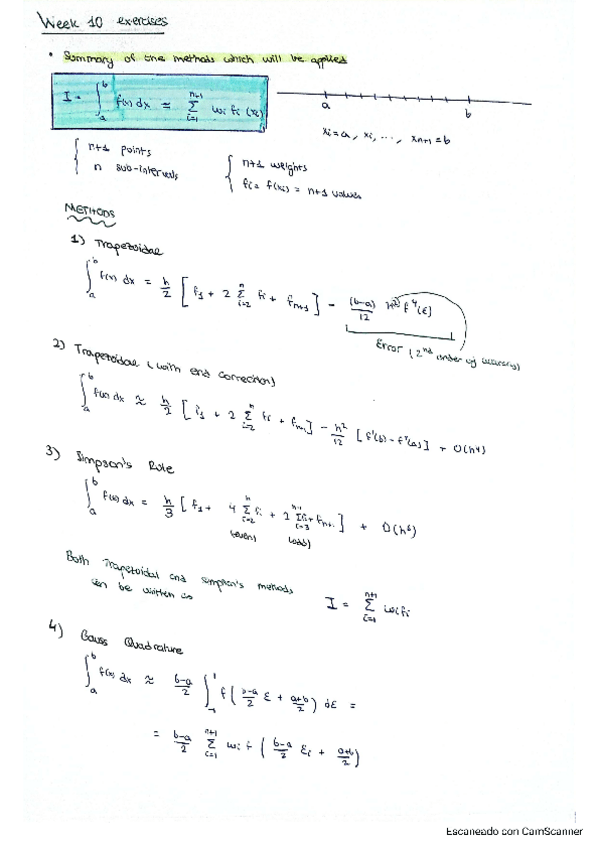 Week 10 exercises
• Summary of the methods which will be applied
I = ∫_a^b f(x) dx ≈ Σ_{i=1}^{n+1} wi fi (xi)
a b
xi = a, xi, ..., xn+1 = b
{ n+1 points
n sub-intervals
{ n+1 weights
fi = f(xi) = n+1 values
METHODS
1) Trapezoidal
∫_a^b f(x) dx = h/2 [ f1 + 2 Σ_{i=2}^n fi + fn+1 ] - (b-a)/12 h² f⁴(ε)
Error (2nd order accuracy)
2) Trapezoidal (with end correction)
∫_a^b f(x) dx ≈ h/2 [ f1 + 2 Σ_{i=2}^n fi + fn+1 ] - h²/12 [ f'(b) - f'(a) ] + O(h⁴)
3) Simpson's Rule
∫_a^b f(x) dx = h/3 [ f1 + 4 Σ_{i=2}^n fi + 2 Σ_{i=3}^{n-1} fi + fn+1 ] + O(h⁵)
(even) (odd)
Both Trapezoidal and Simpson's methods
can be written as I = Σ_{i=1}^{n+1} wi fi
4) Gauss Quadrature
∫_a^b f(x) dx ≈ (b-a)/2 ∫_{-1}^1 f ( (b-a)/2 ε + (a+b)/2 ) dε =
= (b-a)/2 Σ_{i=1}^{n+1} wi f ( (b-a)/2 εi + (a+b)/2 )
Escaneado con CamScanner